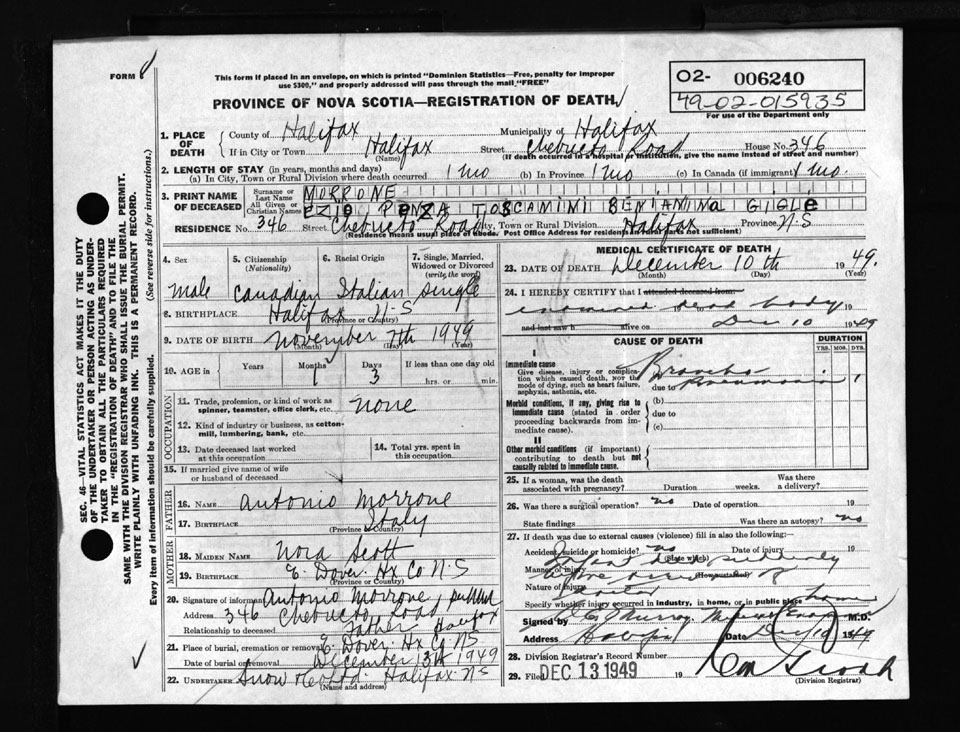 FORM 8
This form if placed in an envelope, on which is printed "Dominion Statistics—Free, penalty for improper
use $300," and properly addressed will pass through the mail "FREE"
PROVINCE OF NOVA SCOTIA—REGISTRATION OF DEATH
02- 006240
49-02-015935
For use of the Department only
1. PLACE OF DEATH
County of Halifax
Municipality of Halifax
If in City or Town Halifax (Name) Street Chebucto Road House No. 346
(If death occurred in a hospital or institution, give the name instead of street and number)
2. LENGTH OF STAY (in years, months and days)
(a) In City, Town or Rural Division where death occurred 1 mo (b) In Province 1 mo (c) In Canada (if immigrant) 1 mo.
3. PRINT NAME OF DECEASED
Surname or Last Name MORRONE
All Given or Christian Names EZIO PENZA TOSCAMINI BENIAMINA GIGLE
RESIDENCE No. 346 Street Chebucto Road City, Town or Rural Division Halifax Province N.S
(Residence means usual place of abode. Post Office Address for residents in rural parts not sufficient)
4. Sex
male
5. Citizenship (Nationality)
Canadian
6. Racial Origin
Italian
7. Single, Married, Widowed or Divorced (write the word)
single
8. BIRTHPLACE Halifax N.S
(Province or Country)
9. DATE OF BIRTH November 7th 1949
(Month) (Day) (Year)
10. AGE in Years Months 1 Days 3 If less than one day old hrs. or min.
OCCUPATION
11. Trade, profession, or kind of work as spinner, teamster, office clerk, etc. none
12. Kind of industry or business, as cotton-mill, lumbering, bank, etc.
13. Date deceased last worked at this occupation
14. Total yrs. spent in this occupation
15. If married give name of wife or husband of deceased
FATHER
16. NAME Antonio Morrone
17. BIRTHPLACE Italy
(Province or Country)
MOTHER
18. MAIDEN NAME Nora Scott
19. BIRTHPLACE E. Dover Hx Co N.S
(Province or Country)
20. Signature of informant Antonio Morrone
Address 346 Chebucto Road Halifax
Relationship to deceased Father
21. Place of burial, cremation or removal E. Dover Hx Co N.S
Date of burial or removal December 13th 1949
22. UNDERTAKER Snow Halifax N.S
(Name and address)
MEDICAL CERTIFICATE OF DEATH
23. DATE OF DEATH December 10th 1949.
(Month) (Day) (Year)
24. I HEREBY CERTIFY that I attended deceased from
examined dead body 19
and last saw h alive on Dec 10 1949
CAUSE OF DEATH
DURATION
YRS. MOS. DYS.
I
Immediate cause
Give disease, injury or complication which caused death, NOT the mode of dying, such as heart failure, asphyxia, asthenia, etc.
Broncho
due to Pneumonia 1
Morbid conditions, if any, giving rise to immediate cause (stated in order proceeding backwards from immediate cause).
(b)
due to
(c)
II
Other morbid conditions (if important) contributing to death but not causally related to immediate cause.
25. If a woman, was the death associated with pregnancy? Duration weeks. Was there a delivery?
26. Was there a surgical operation? no Date of operation 19
State findings Was there an autopsy? no
27. If death was due to external causes (violence) fill in also the following:—
Accident, suicide or homicide? no (State which) Date of injury 19
Manner of injury suddenly
(How sustained)
Nature of injury
Specify whether injury occurred in industry, in home, or in public place home
Signed by Murray M.D.
Address Halifax Date Dec 10 1949
28. Division Registrar's Record Number
29. Filed DEC 13 1949 19
(Division Registrar)
SEC. 46—VITAL STATISTICS ACT MAKES IT THE DUTY
OF THE UNDERTAKER OR PERSON ACTING AS UNDER-
TAKER TO OBTAIN ALL THE PARTICULARS REQUIRED
IN THE "REGISTRATION OF DEATH" AND TO FILE THE
SAME WITH THE DIVISION REGISTRAR WHO SHALL ISSUE THE BURIAL PERMIT.
WRITE PLAINLY WITH UNFADING INK. THIS IS A PERMANENT RECORD.
Every item of information should be carefully supplied. (See reverse side for instructions.)